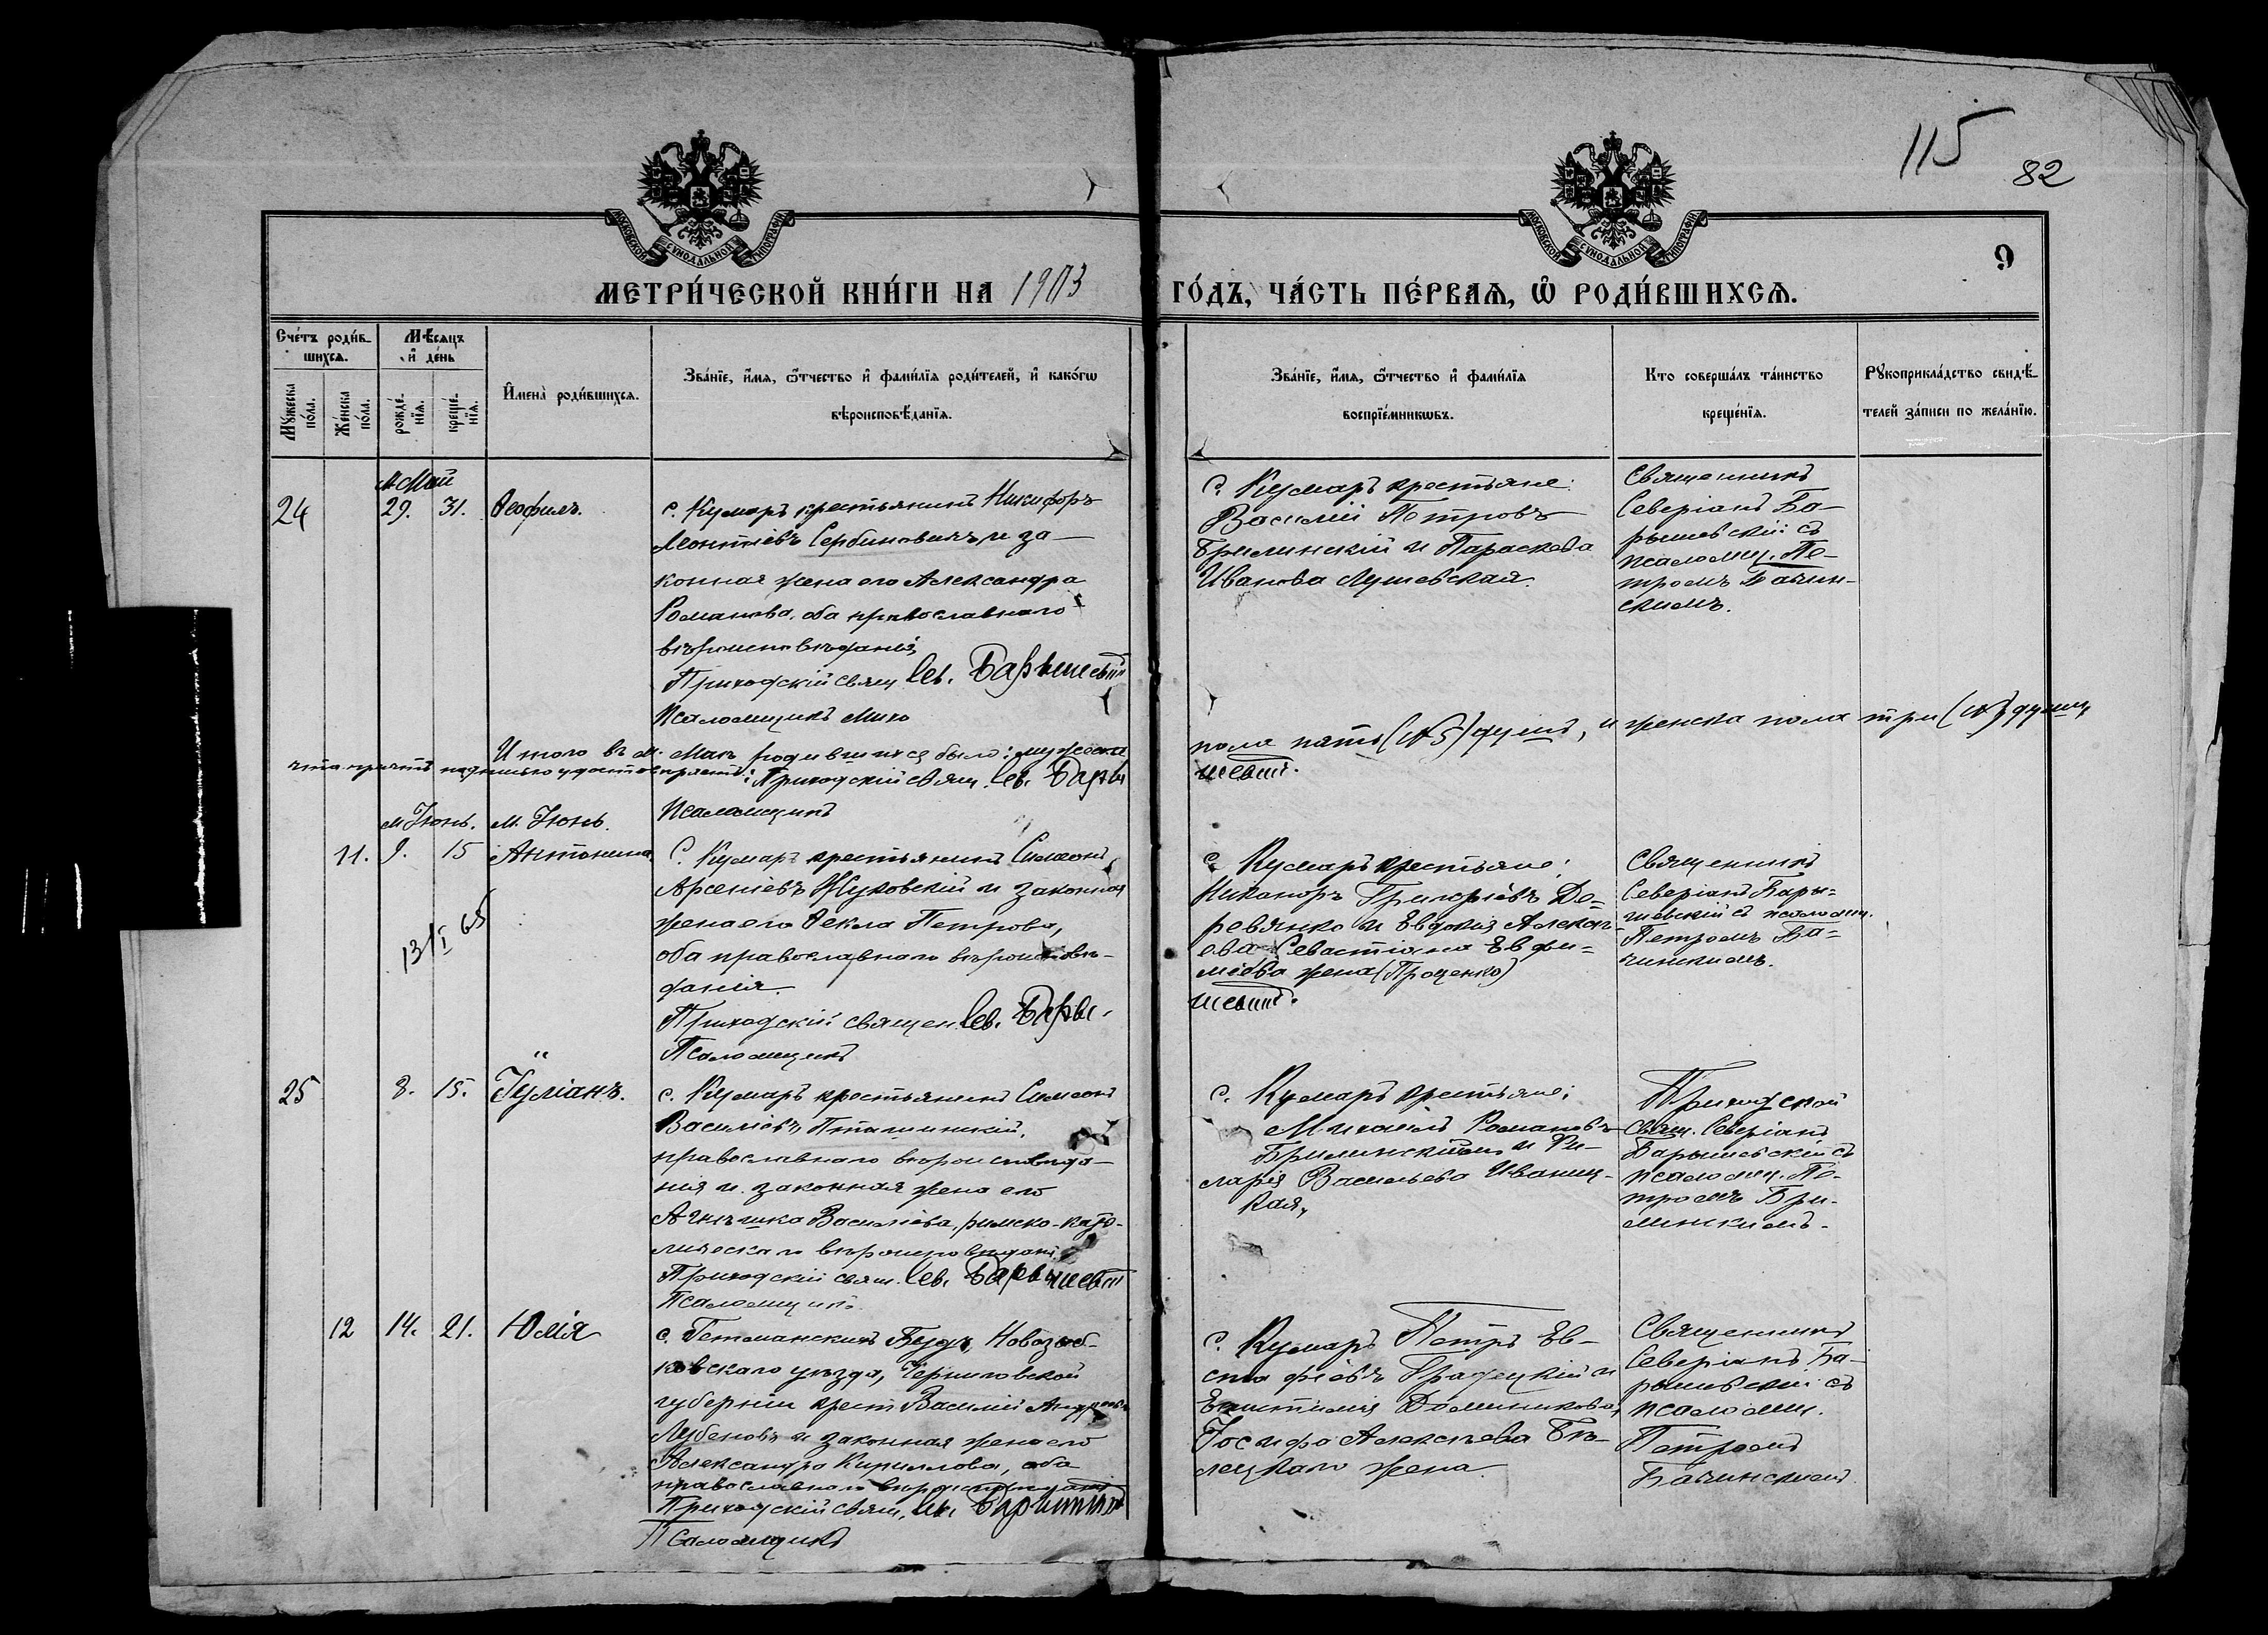 115
82
9
МОСКОВСКОЙ СУНОДАЛЬНОЙ ТИПОГРАФІИ
МОСКОВСКОЙ СУНОДАЛЬНОЙ ТИПОГРАФІИ
МЕТРИ́ЧЕСКОЙ КНИ́ГИ НА 1903 ГО́ДЪ, ЧА́СТЬ ПЕ́РВАѦ, Ѽ РОДИ́ВШИХСѦ.
Сче́тъ роди́в-
шихсѧ.
Мѣ́сѧцъ
и҆ де́нь
Мꙋ́жеска по́ла.
Же́нска по́ла.
рожде́-
нїѧ.
креще́-
нїѧ.
И҆мена̀ роди́вшихсѧ.
Зва́нїе, и҆́мѧ, ѻ҆́тчество и҆ фами́лїѧ роди́телей, и҆ како́гѡ
вѣроисповѣ́данїѧ.
Зва́нїе, и҆́мѧ, ѻ҆́тчество и҆ фами́лїѧ
воспрїе́мникѡвъ.
Кто соверша́лъ та́инство
креще́нїѧ.
Рꙋкоприкла́дство свидѣ́-
телей за́писи по жела́нїю.
м. Май
24
29. 31. Ѳеофилъ.
с. Кумаръ крестьянинъ Никифоръ
Леонтіевъ Сербиновичъ и за-
конная жена его Александра
Романова, оба православнаго
вѣроисповѣданія
Приходскій свящ. Сев. Барышевскій
Псаломщикъ
с. Кумаръ крестьяне:
Василій Петровъ
Брилинскій и Параскева
Иванова Лушевская.
Священникъ
Северіанъ Ба-
рышевскій съ
псаломщ. Пе-
тромъ Бачин-
скимъ.
Итого въ м. Маѣ родившихся было: мужеска пола пять (№5) душъ, и женска пола три душъ,
что причтъ подписью удостовѣряетъ: Приходскій свящ. Сев. Бары
шевскій.
Псаломщикъ
м Іюнь. м. Іюнь.
11. 9. 15 Антонина
13/I 65
С. Кумаръ крестьянинъ Симеонъ
Арсеніевъ Жуковскій и законная
жена его Ѳекла Петрова,
оба православнаго вѣроисповѣ-
данія.
Приходскій священ. Сев. Бары-
шевскій.
Псаломщикъ
с. Кумаръ крестьяне:
Никаноръ Григоріевъ Де-
ревянко и Евдокія Алексѣ-
ева Севастіана Евфи-
міева жена (Проценко)
Священникъ
Северіанъ Бары-
шевскій съ псаломщ.
Петромъ Ба-
чинскимъ.
25
8. 15. Іуліанъ.
с. Кумаръ крестьянинъ Симеонъ
Василіевъ Пташинскій,
православнаго вѣроисповѣда-
нія и законная жена его
Агнѣшка Василіева, римско-като-
лическаго вѣроисповѣданія
Приходскій свящ. Сев. Барышевскій
Псаломщикъ.
с. Кумаръ крестьяне:
Михаилъ Романовъ
Брилинскій и
Васильева Иваниц-
кая,
Приходской
свящ. Северіанъ
Барышевскій съ
псаломщ. Пе-
тромъ Бри-
линскимъ.
12 14. 21. Юлія
с. Гетманскихъ Будъ, Новозыб-
ковскаго уѣзда, Черниговской
губерніи крест. Василій Андреевъ
Лубеновъ и законная жена его
Александра Кириллова, оба
православнаго вѣроисповѣданія
Приходскій свящ. Сев. Барышевскій
Псаломщикъ
с. Кумаръ Петръ Ев-
стафіевъ Градецкій и
Епистимія Доминикова,
Іосифа Алексѣева Бѣ-
лецкаго жена.
Священникъ
Северіанъ Ба-
рышевскій съ
псаломщ.
Петромъ
Бачинскимъ